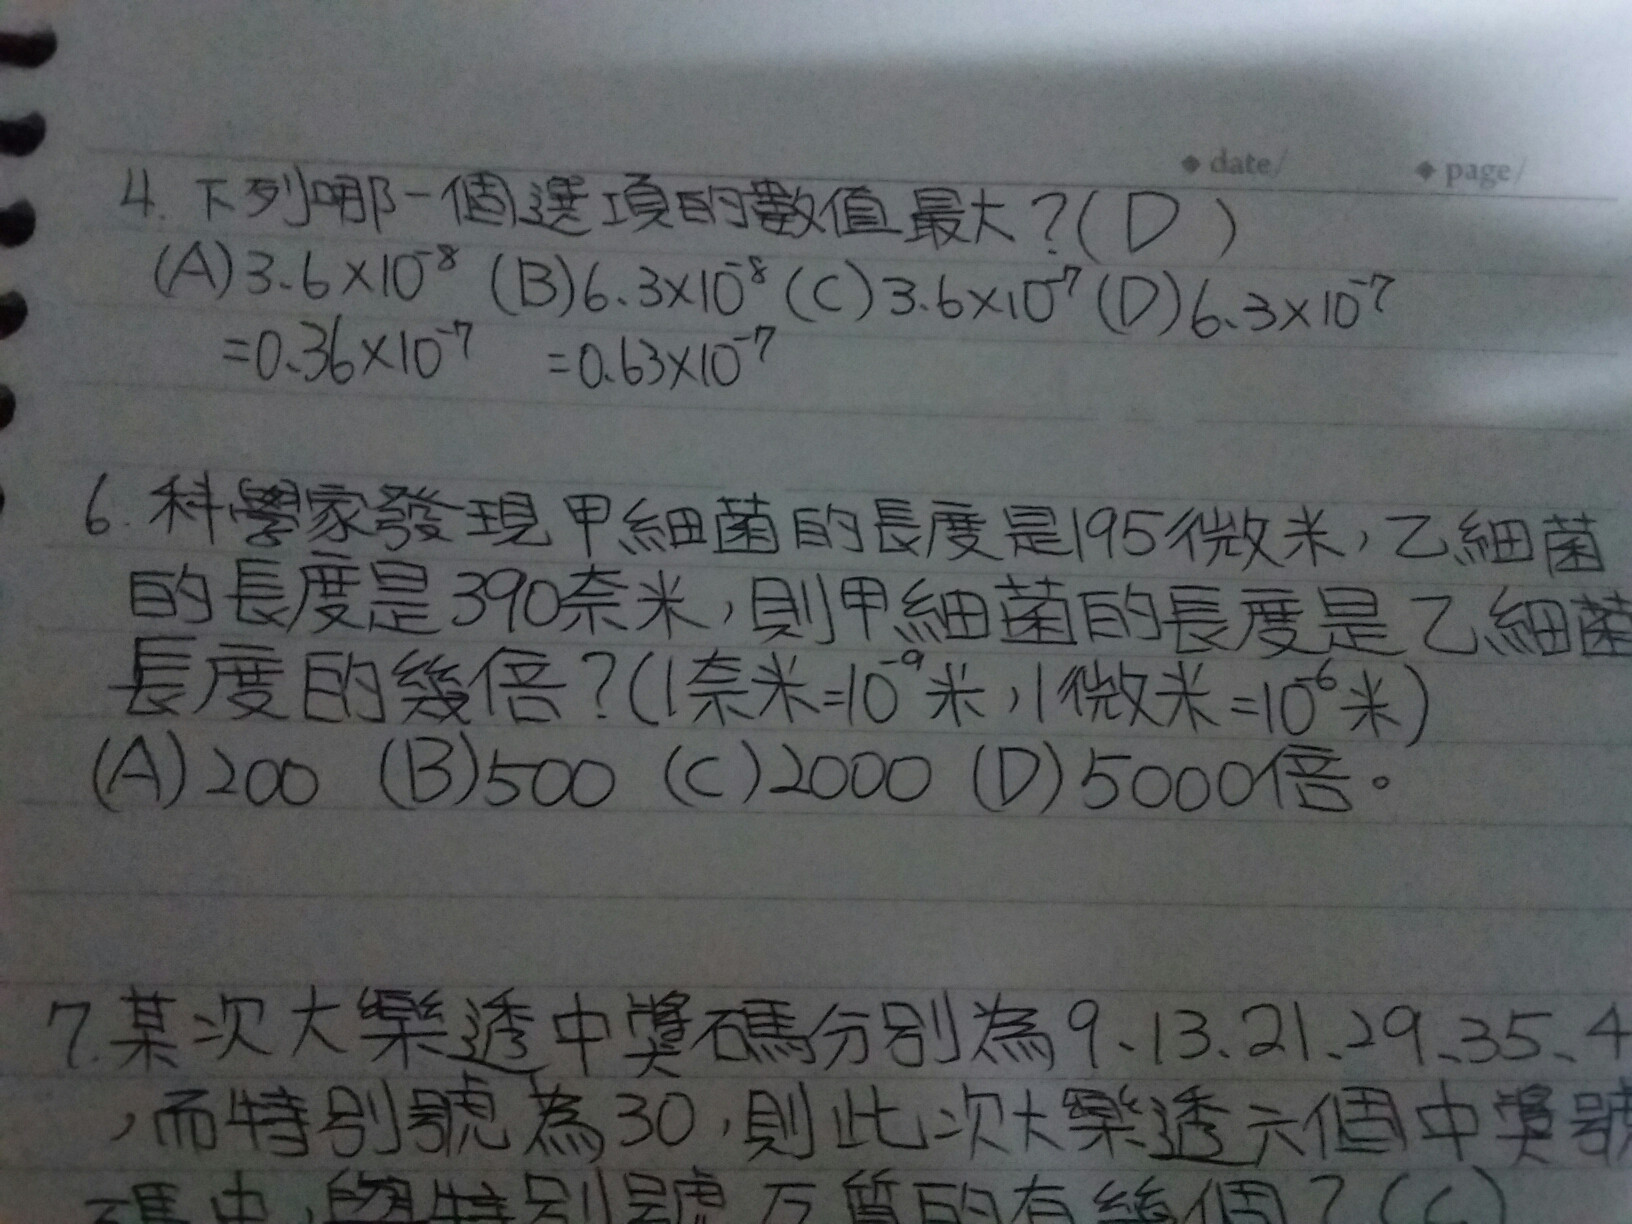 ◆ date/ ◆ page/
4. 下列哪一個選項的數值最大?(D)
(A)3.6×10⁻⁸ (B)6.3×10⁻⁸ (C)3.6×10⁻⁷ (D)6.3×10⁻⁷
=0.36×10⁻⁷ =0.63×10⁻⁷
6. 科學家發現甲細菌的長度是195微米,乙細菌
的長度是390奈米,則甲細菌的長度是乙細菌
長度的幾倍?(1奈米=10⁻⁹米,1微米=10⁻⁶米)
(A)200 (B)500 (C)2000 (D)5000倍。
7. 某次大樂透中獎碼分別為9、13、21、29、35、4
,而特別號為30,則此次大樂透六個中獎號
碼中,與特別號互質的有幾個?(C)